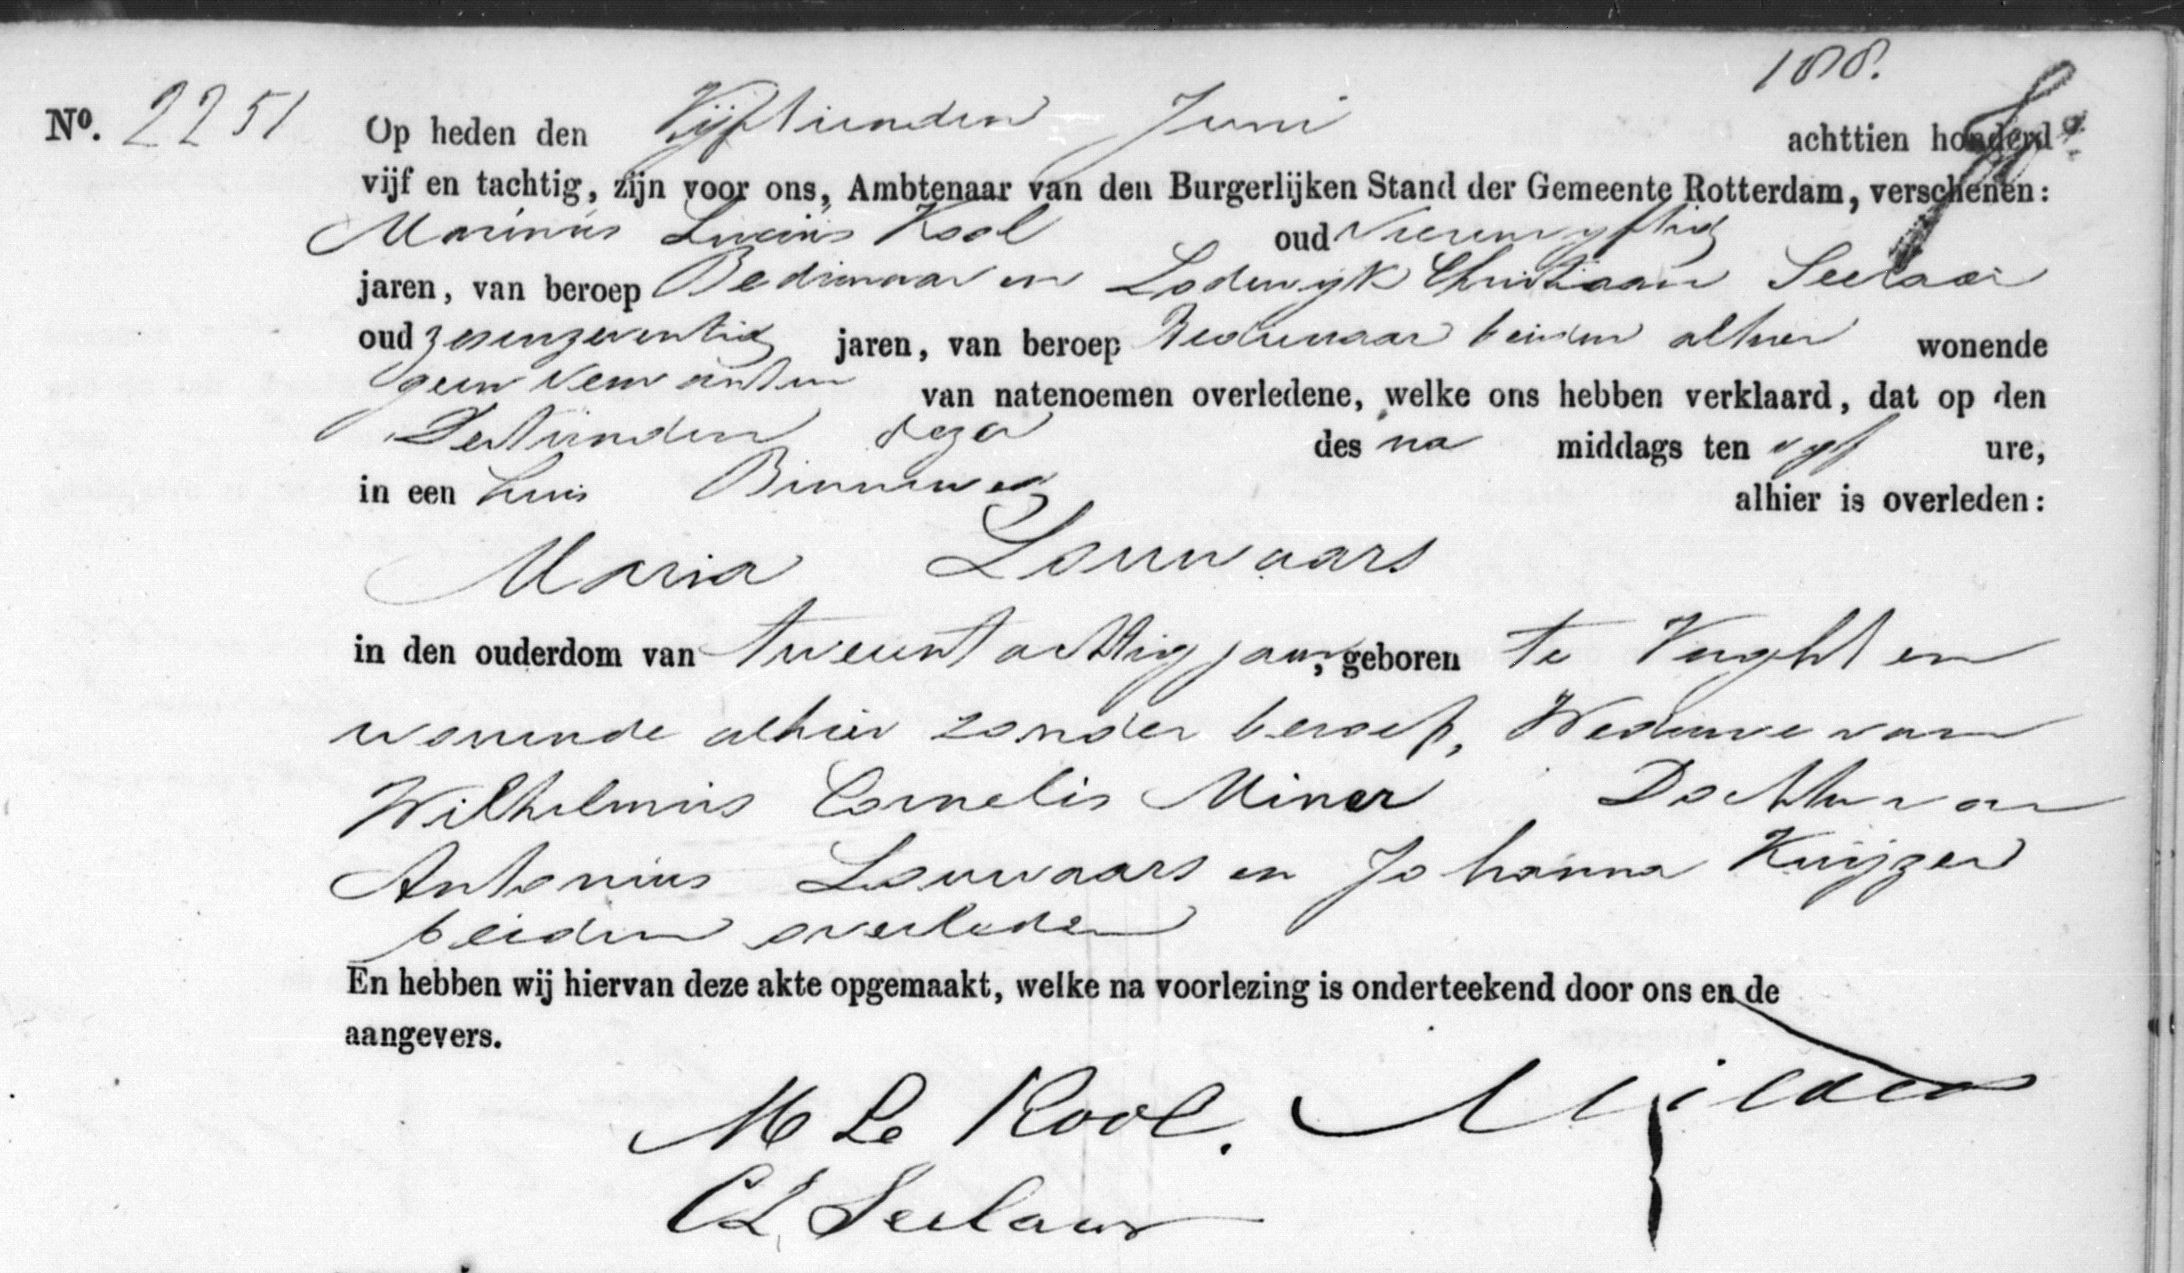 188.
No. 2251 Op heden den Vijftienden Juni achttien honderd
vijf en tachtig, zijn voor ons, Ambtenaar van den Burgerlijken Stand der Gemeente Rotterdam, verschenen:
Marinus Lucius Kool oud vierenvyftig
jaren, van beroep Bedienaar en Lodewyk Christiaan Seelaar
oud zesenzeventig jaren, van beroep Bedienaar beiden alhier wonende
geen verwanten van natenoemen overledene, welke ons hebben verklaard, dat op den
Dertienden dezer des na middags ten vyf ure,
in een huis Binnenweg alhier is overleden:
Maria Louwaars
in den ouderdom van tweeentachtig jaren, geboren te Vught en
wonende alhier zonder beroep, Weduwe van
Wilhelmus Cornelis Miner Dochter van
Antonius Louwaars en Johanna Kuijzer
beiden overleden
En hebben wij hiervan deze akte opgemaakt, welke na voorlezing is onderteekend door ons en de
aangevers.
M Lc Kool.
CL Seelaar